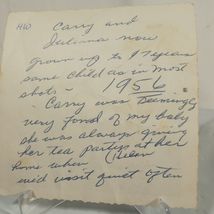 H10 Carry and
Julianna now
grown up to 17 years
same child as in most
shots - 1956
- Carry was seemingly
very fond of my baby
she was always giving
her tea parties at her
home when Helen
we'd visit quiet often